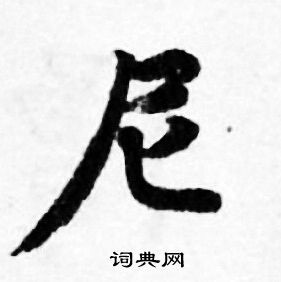 尼
词典网